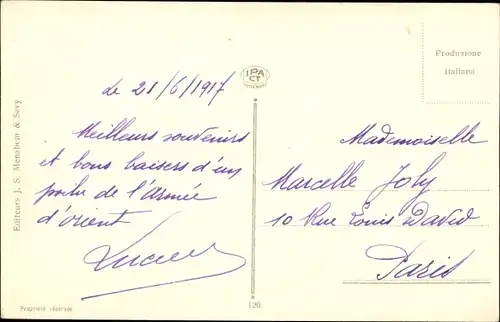 Produzione
Italiana
IPA
CT
le 21/6/1917
Meilleurs souvenirs
et bons baisers d'un
poilu de l'armée
d'orient
Lucien
Mademoiselle
Marcelle Joly
10 Rue Louis David
Paris
Editeurs J. S. Membrem & Sevy
Propriété réservée
120